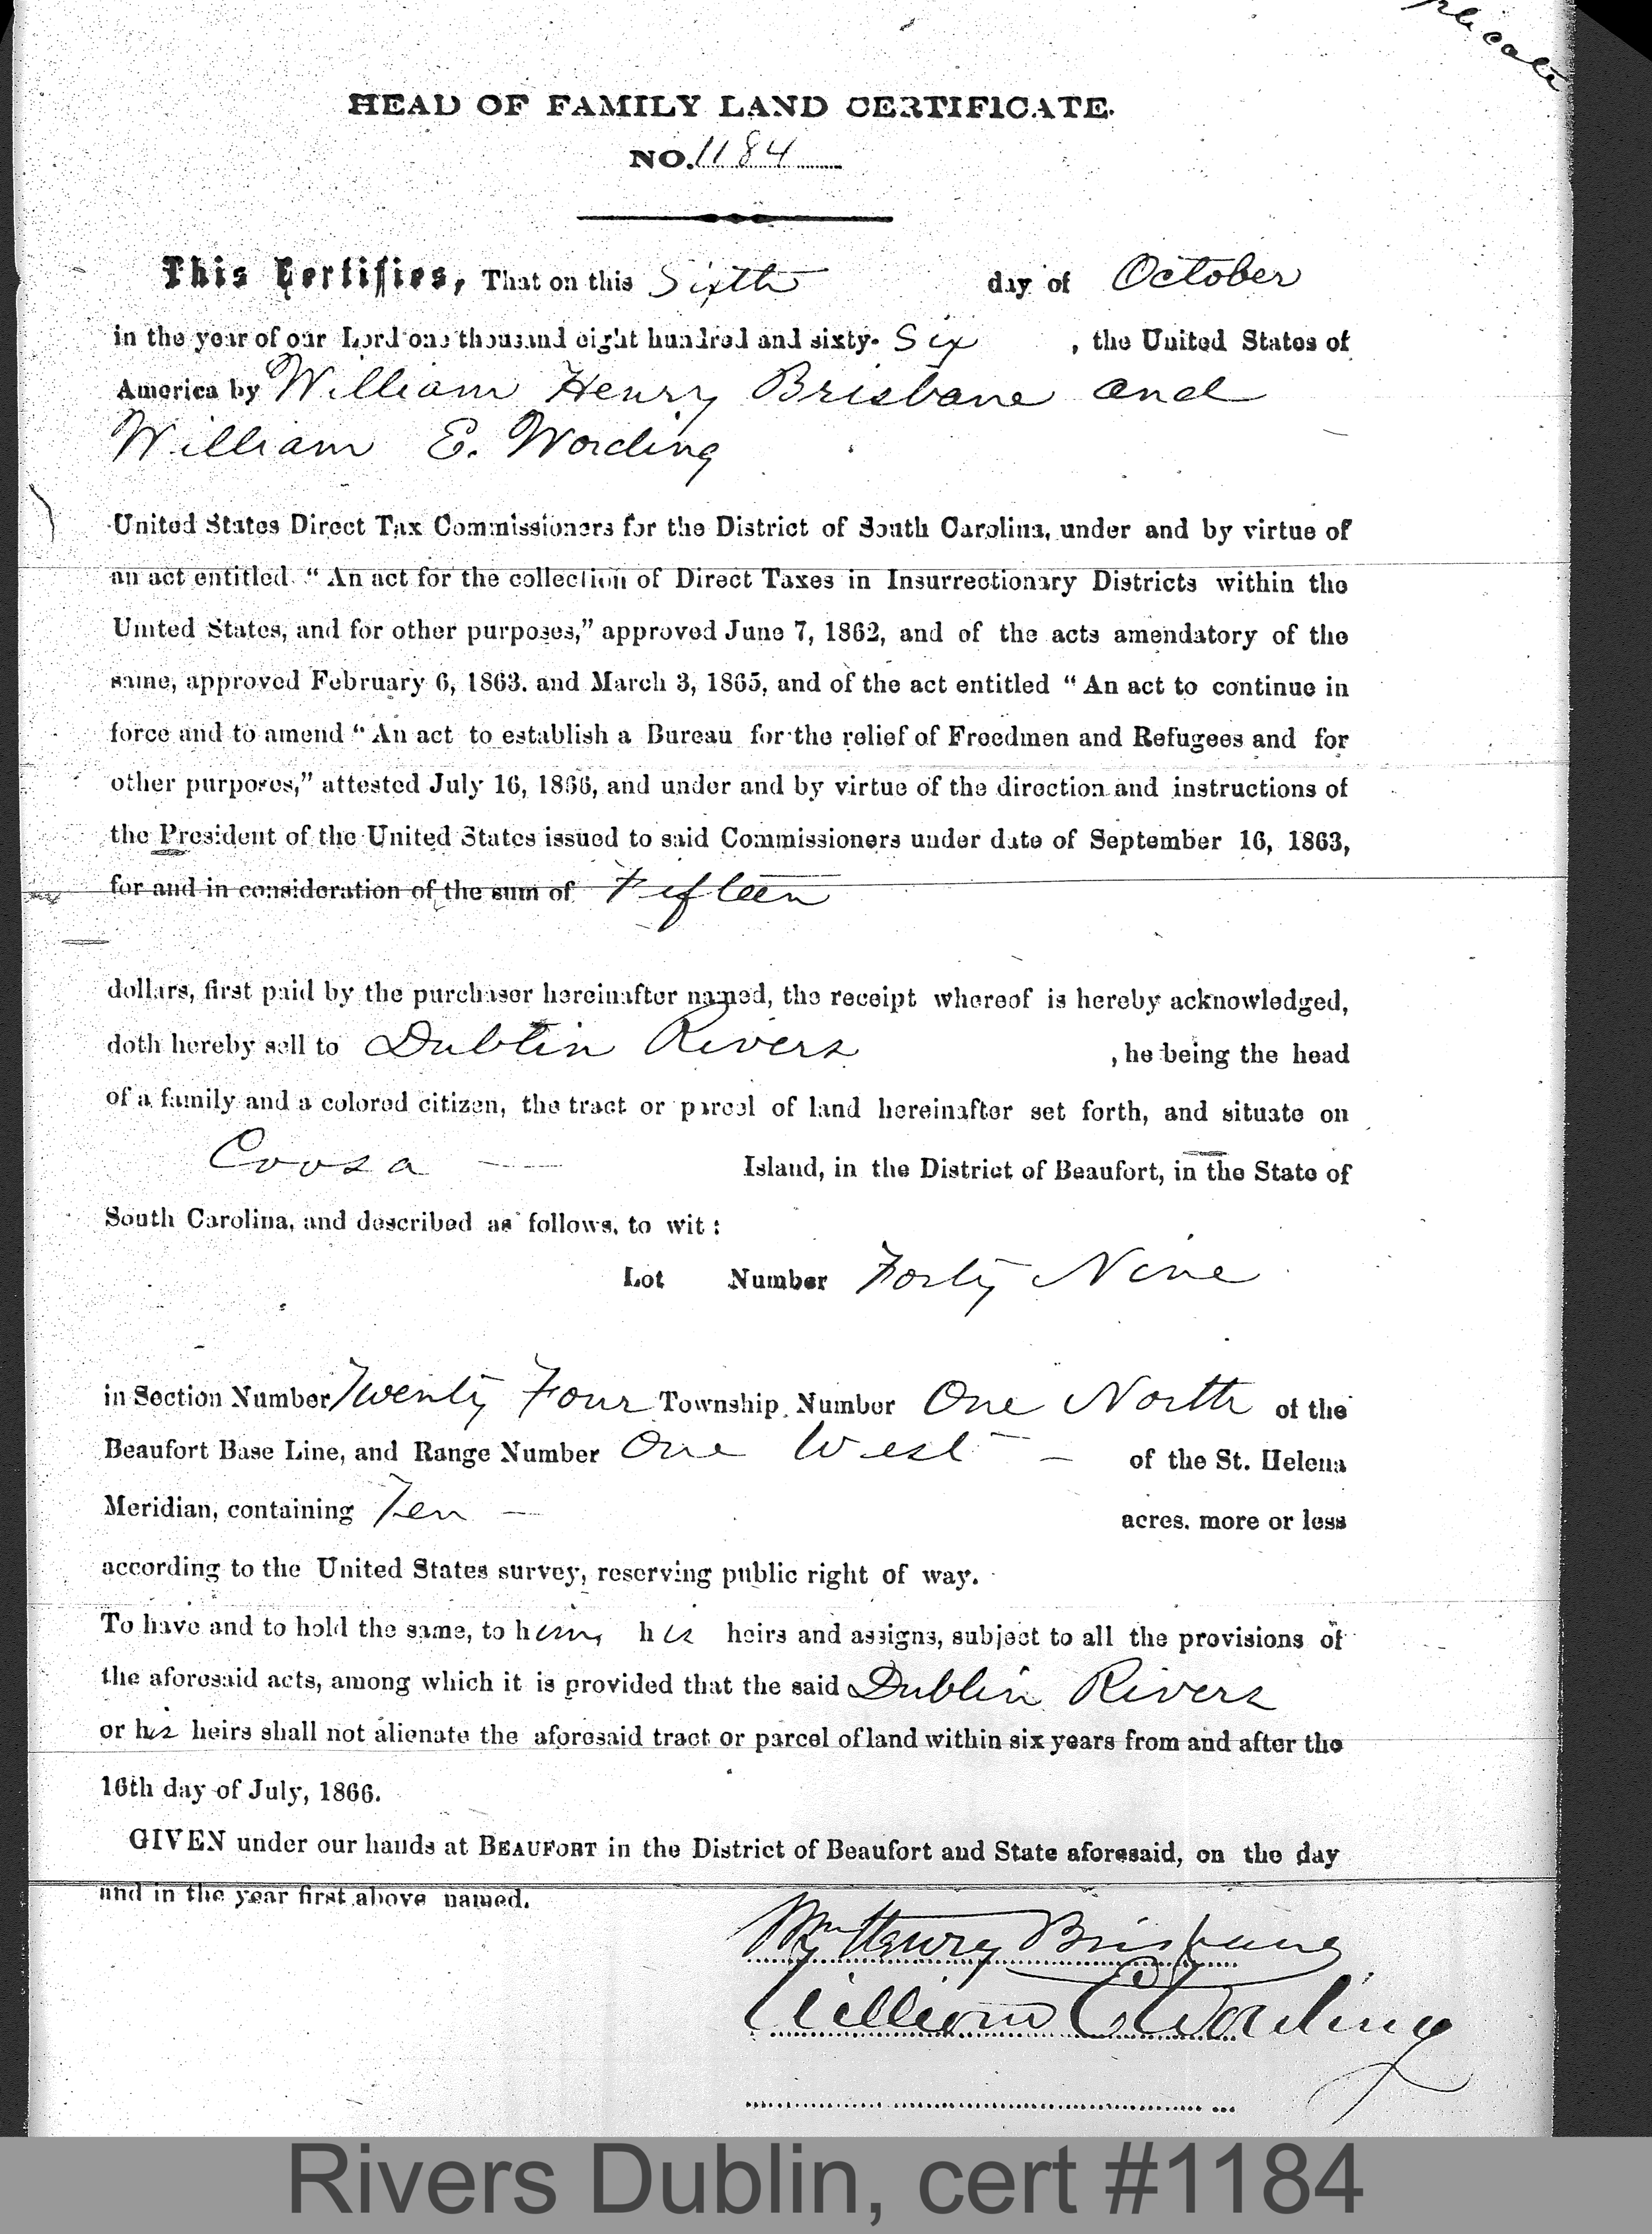 plicate
HEAD OF FAMILY LAND CERTIFICATE.
NO. 1184
This Certifies, That on this Sixth day of October
in the year of our Lord one thousand eight hundred and sixty- Six , the United States of
America by William Henry Brisbane and
William E. Wording
United States Direct Tax Commissioners for the District of South Carolina, under and by virtue of
an act entitled "An act for the collection of Direct Taxes in Insurrectionary Districts within the
United States, and for other purposes," approved June 7, 1862, and of the acts amendatory of the
same, approved February 6, 1863. and March 3, 1865, and of the act entitled "An act to continue in
force and to amend "An act to establish a Bureau for the relief of Freedmen and Refugees and for
other purposes," attested July 16, 1866, and under and by virtue of the direction and instructions of
the President of the United States issued to said Commissioners under date of September 16, 1863,
for and in consideration of the sum of Fifteen
dollars, first paid by the purchaser hereinafter named, the receipt whereof is hereby acknowledged,
doth hereby sell to Dublin Rivers , he being the head
of a family and a colored citizen, the tract or parcel of land hereinafter set forth, and situate on
Coosa Island, in the District of Beaufort, in the State of
South Carolina, and described as follows, to wit:
Lot Number Forty Nine
in Section Number Twenty Four Township Number One North of the
Beaufort Base Line, and Range Number One West of the St. Helena
Meridian, containing Ten acres. more or less
according to the United States survey, reserving public right of way.
To have and to hold the same, to him, his heirs and assigns, subject to all the provisions of
the aforesaid acts, among which it is provided that the said Dublin Rivers
or his heirs shall not alienate the aforesaid tract or parcel of land within six years from and after the
16th day of July, 1866.
GIVEN under our hands at BEAUFORT in the District of Beaufort and State aforesaid, on the day
and in the year first above named.
Wm Henry Brisbane
William E Wording
Rivers Dublin, cert #1184